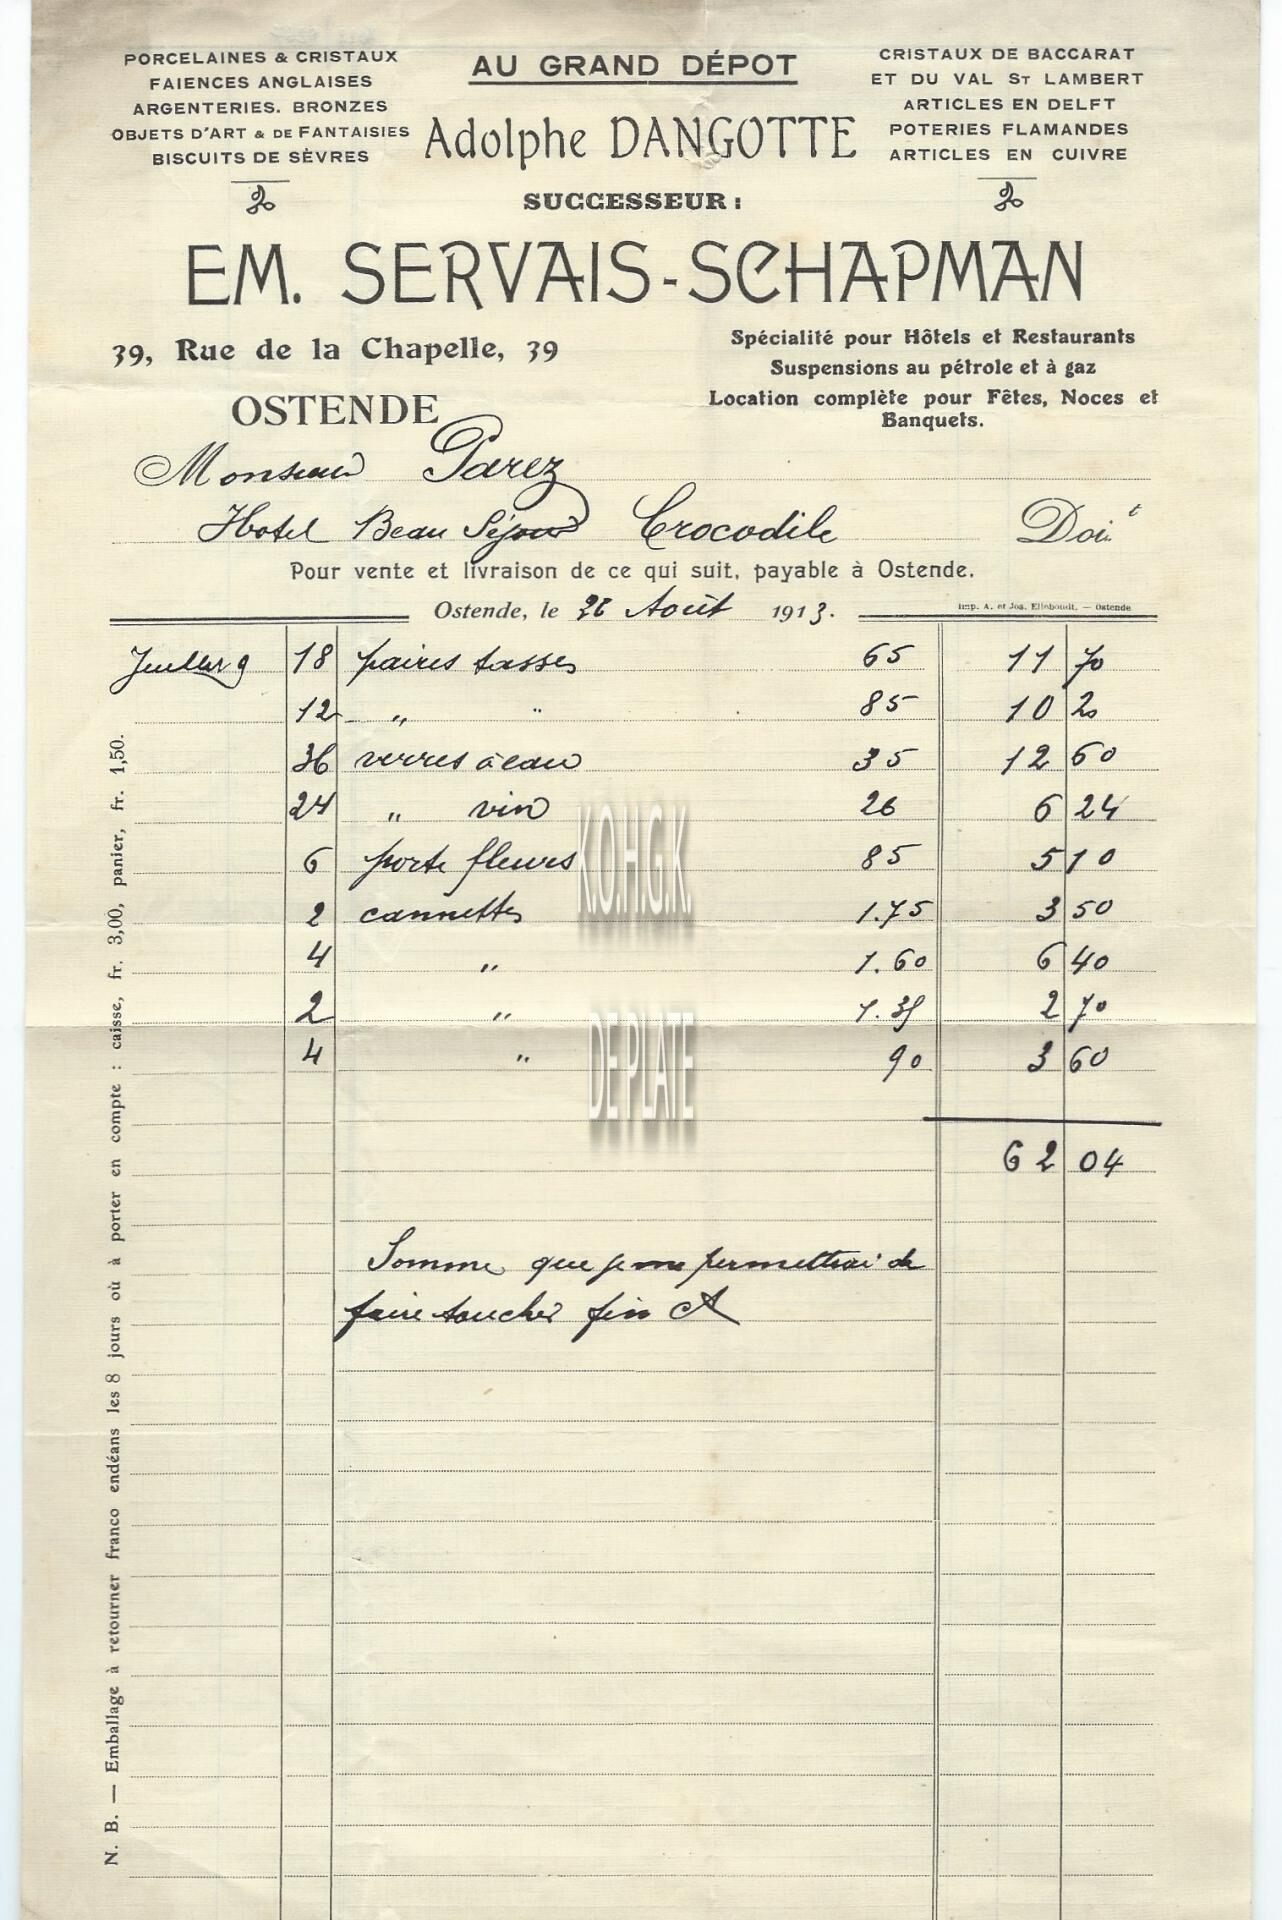 PORCELAINES & CRISTAUX
FAIENCES ANGLAISES
ARGENTERIES. BRONZES
OBJETS D'ART & DE FANTAISIES
BISCUITS DE SÈVRES
AU GRAND DÉPOT
Adolphe DANGOTTE
SUCCESSEUR :
CRISTAUX DE BACCARAT
ET DU VAL ST LAMBERT
ARTICLES EN DELFT
POTERIES FLAMANDES
ARTICLES EN CUIVRE
EM. SERVAIS-SCHAPMAN
39, Rue de la Chapelle, 39
OSTENDE
Spécialité pour Hôtels et Restaurants
Suspensions au pétrole et à gaz
Location complète pour Fêtes, Noces et
Banquets.
Monsieur Parez
Hotel Beau Séjour Crocodile Doit
Pour vente et livraison de ce qui suit, payable à Ostende.
Ostende, le 26 Août 1913.
Imp. A. et Jos. Elleboudt. — Ostende
Juillet 9 18 paires tasses 65 11 70
12 " " 85 10 20
36 verres à eau 35 12 60
24 " vin 26 6 24
6 porte fleurs 85 5 10
2 cannettes 1.75 3 50
4 " 1.60 6 40
2 " 1.35 2 70
4 " 90 3 60
62 04
Somme que je me permettrai de
faire toucher fin Ct
K.O.H.G.K.
DE PLATE
N. B. — Emballage à retourner franco endéans les 8 jours où à porter en compte : caisse, fr. 3,00, panier, fr. 1,50.